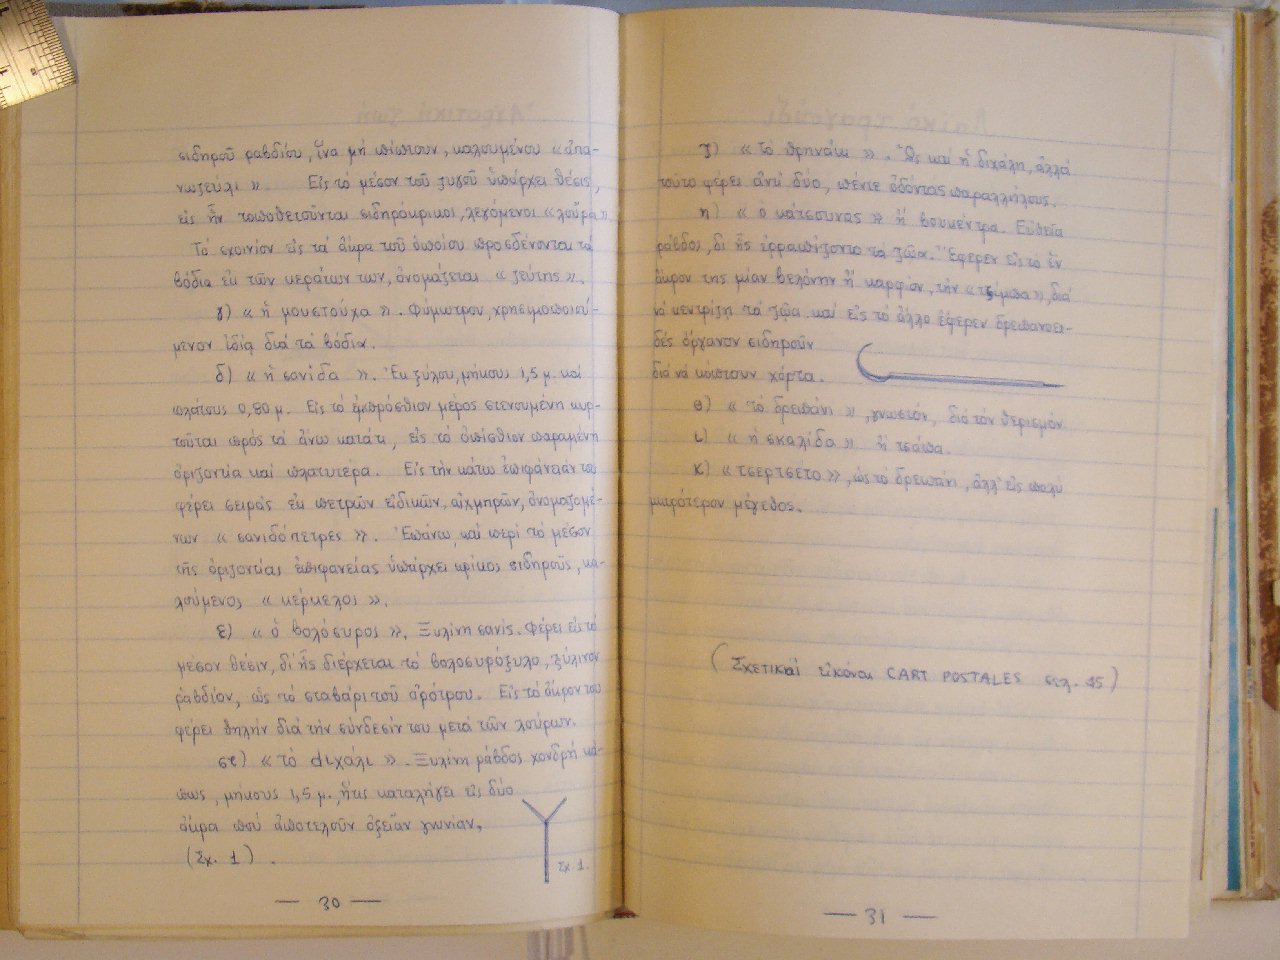 σιδηροῦ ραβδίου, ἵνα μή πίπτουν, καλουμένου «ἀπα-
νωζεύλι». Εἰς τό μέσον τοῦ ζυγοῦ ὑπάρχει θέσις,
εἰς ἥν τοποθετοῦνται σιδηρόκρικοι, λεγόμενοι «λοῦρα»
Τό σχοινίον εἰς τά ἄκρα τοῦ ὁποίου προσδένονται τά
βόδια ἐκ τῶν κεράτων των, ὀνομάζεται «ζεύτης».
γ) «ἡ μουστούχα». Φίμωτρον, χρησιμοποιού-
μενον ἰδίᾳ διά τά βόδια.
δ) «ἡ σανίδα». Ἐκ ξύλου, μήκους 1,5 μ. καί
πλάτους 0,80 μ. Εἰς τό ἐμπρόσθιον μέρος στενουμένη κυρ-
τοῦται πρός τά ἄνω κατάτι, εἰς τό ὀπίσθιον παραμένη
ὁριζοντία καί πλατυτέρα. Εἰς τήν κάτω ἐπιφάνειάν του
φέρει σειράς ἐκ πετρῶν εἰδικῶν, αἰχμηρῶν, ὀνομαζομέ-
νων «σανιδόπετρες». Ἐπάνω, καί περί τό μέσον
τῆς ὁριζοντίας ἐπιφανείας ὑπάρχει κρίκος σιδηροῦς, κα-
λούμενος «κέρκελος».
ε) «ὁ βολόσυρος». Ξυλίνη σανίς. Φέρει εἰς τό
μέσον θέσιν, δι' ἧς διέρχεται τό βολοσυρόξυλο, ξύλινον
ῥαβδίον, ὡς τό σταβάρι τοῦ ἀρότρου. Εἰς τό ἄκρον του
φέρει θηλήν διά τήν σύνδεσίν του μετά τῶν λούρων.
στ) «τό διχάλι». Ξυλίνη ράβδος χονδρή κά-
πως, μήκους 1,5 μ., ἥτις καταλήγει εἰς δύο
ἄκρα πού ἀποτελοῦν ὀξεῖαν γωνίαν.
(Σχ. 1).
Σχ. 1.
— 30 —
ζ) «τό θρηνάκι». Ὡς καί ἡ διχάλη, ἀλλά
τοῦτο φέρει ἀντί δύο, πέντε ὀδόντας παραλλήλους.
η) «ὁ κάτσουνας» ἤ βουκέντρα. Εὐθεῖα
ράβδος, δι' ἧς ἐρραπίζοντο τά ζῶα. Ἔφερεν εἰς τό ἕν
ἄκρον της μίαν βελόνην ἤ καρφίον, τήν «τσίμπα», διά
νά κεντρίζη τά ζῷα καί εἰς τό ἄλλο ἔφερεν δρεπανοει-
δές ὄργανον σιδηροῦν
διά νά κόπτουν χόρτα.
θ) «τό δρεπάνι», γνωστόν, διά τόν θερισμόν.
ι) «ἡ σκαλίδα» ἤ τσάπα.
κ) «τσερτσέτο», ὡς τό δρεπάνι, ἀλλ' εἰς πολύ
μικρότερον μέγεθος.
(Σχετικαί εἰκόναι CART POSTALES σελ. 45)
— 31 —